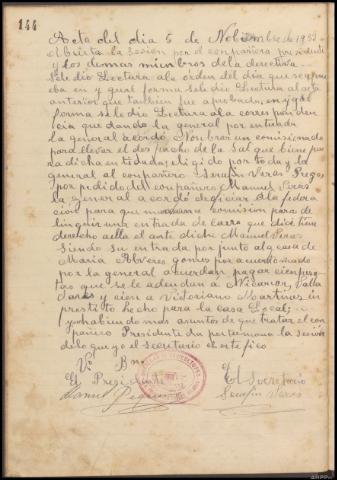 144
Acta del dia 5 de Noviembre de 1932
Abierta la sesion por el compañero presidente
y los demas miembros de la directiva
se le dio Lectura ala orden del dia que se aprue
ba en y gual forma se le dio Lectura al acta
anterior que tambien fue aprobada, en ygual
forma se le dio Lectura ala correspondien
cia que dando la general por enterada
la general acordó Nonbrar un comisionado
para llevar el despacho de la Sal que biene por
la dicha entidad; eligido por toda y la
general al compañero Serafin Veras
por pedido del compañero Manuel Peres
la general acordó
cion para que comision para de
linquir una entrada de carro que dice tiene
derecho aella el ante dicho Manuel Peres
Siendo Su entrada por junto ala casa de
Maria Alveres gomes por acuerdo
por la general acuerdan pagar cien pese
tas que se le adeudan a Nicanor Valla
dares y cien a Victoriano Martines en
prestito hecho para la casa Local;
y no habiendo mas asuntos de que tratar el con
pañero Presidente da por terminada la sesion
de lo que yo el secretario certifico
Vº Bno
El Presidente El Secretario
Manuel Serafin Veras